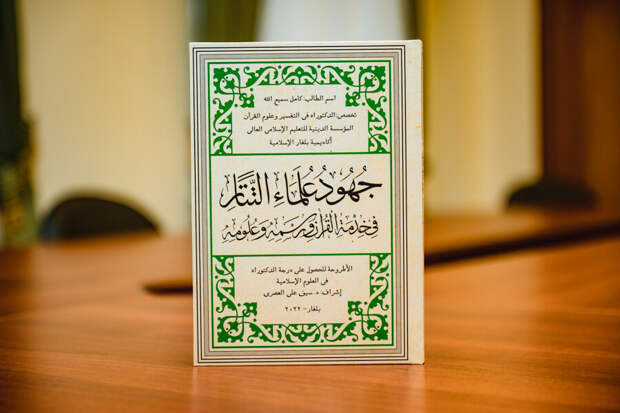 اسم الطالب: كامل سميع الله
تخصص: الدكتوراه في التفسير وعلوم القرآن
المؤسسة الدينية للتعليم الإسلامي العالي
أكاديمية بلغار الإسلامية
جُهُودُ عُلَمَاءِ التَّتَارِ
فِي خِدْمَةِ الْقُرْآنِ وَرَسْمِهِ وَعُلُومِهِ
الأطروحة للحصول على درجة الدكتوراه
في العلوم الإسلامية
إشراف: د. سيف علي العصري
بلغار - ٢٠٢٢